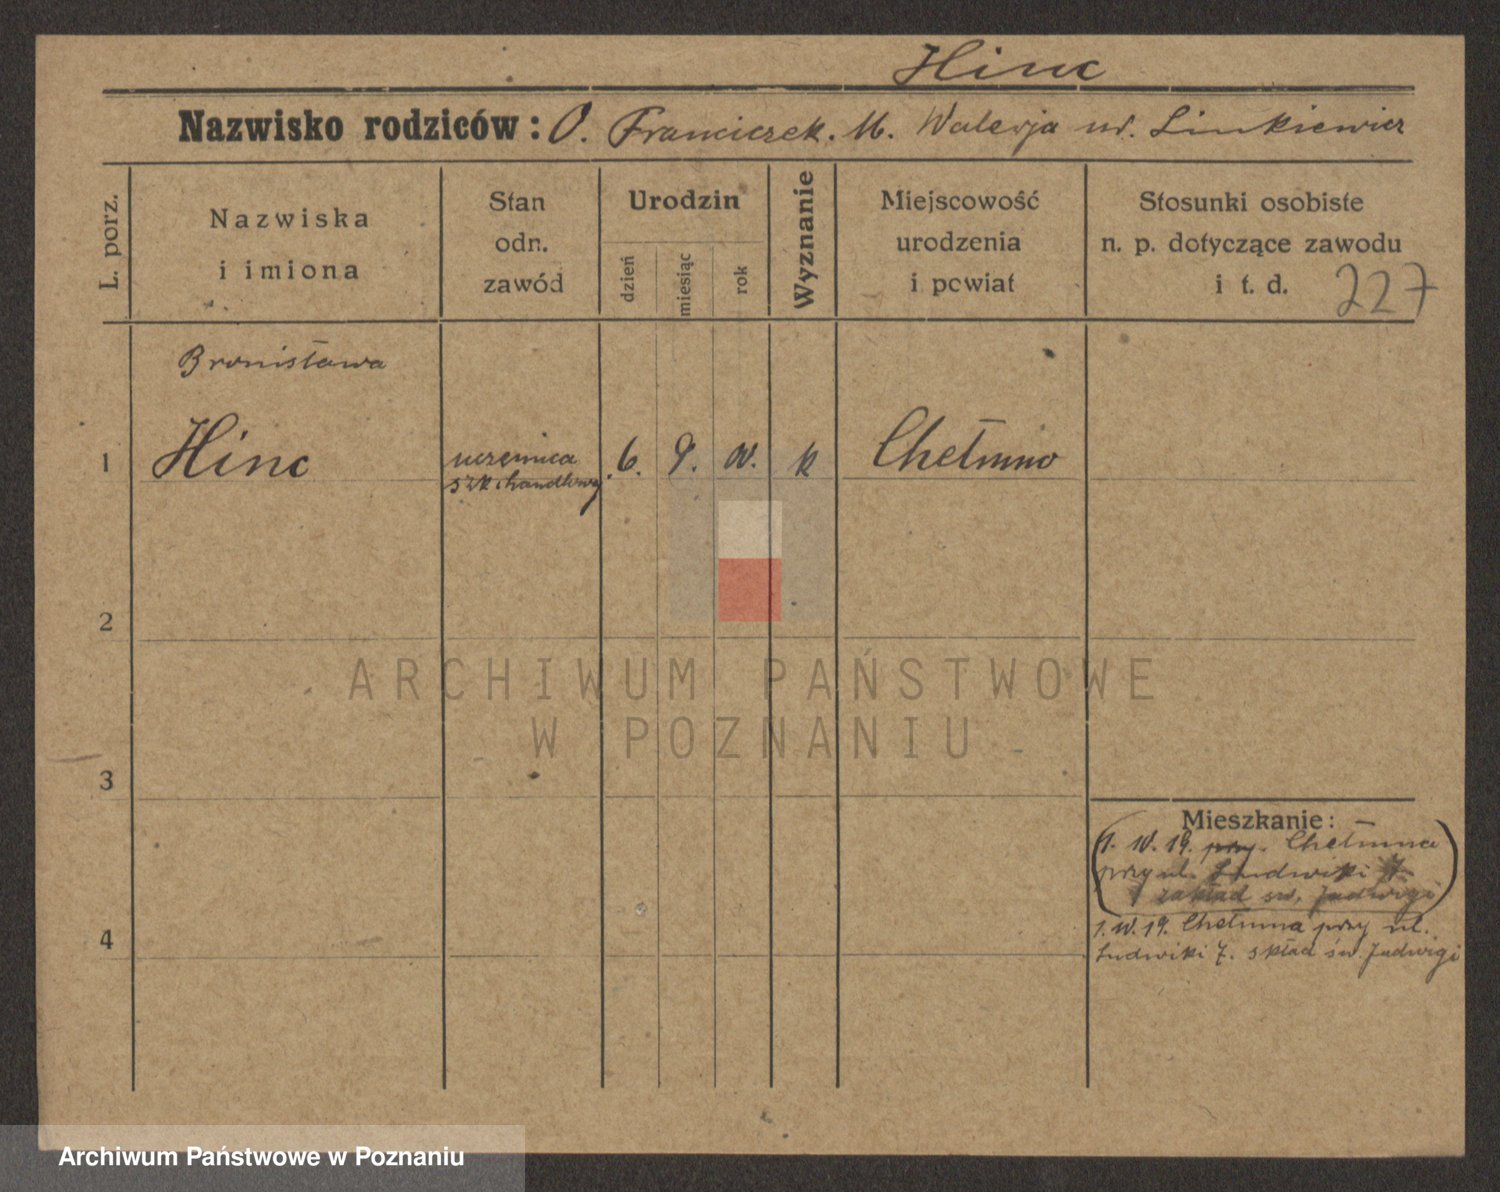 Hinc
Nazwisko rodziców: O. Franciczek. M. Walerja ur. Linkiewicz
L. porz.
Nazwiska
i imiona
Stan
odn.
zawód
Urodzin
dzień
miesiąc
rok
Wyznanie
Miejscowość
urodzenia
i powiat
Stosunki osobiste
n. p. dotyczące zawodu
i t. d.
227
Bronisława
1 Hinc uczenica 6. 9. k Chełmno
szk. handlowej
2
3
4
Mieszkanie:
1. IV. 19. przy. Chełmna
przy ul. Ludwiki 7.
zakład św. Jadwigi
1. IV. 19. Chełmna przy ul.
Ludwiki 7. skład św. Jadwigi
ARCHIWUM PAŃSTWOWE
W POZNANIU
Archiwum Państwowe w Poznaniu